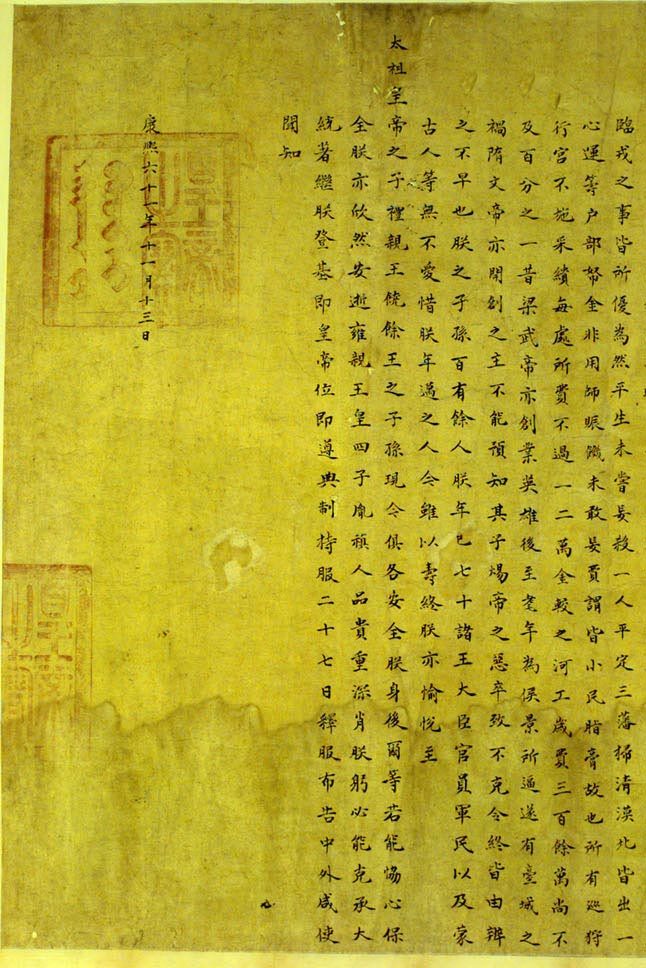 臨戎之事皆所優為然平生未嘗妄殺一人平定三藩掃清漠北皆出一
心運等户部帑金非用師賑饑未敢妄費謂皆小民脂膏故也所有巡狩
行宮不施采繢每處所費不過一二萬金較之河工歲費三百餘萬尚不
及百分之一昔梁武帝亦創業英雄後至耄年為侯景所逼遂有臺城之
禍隋文帝亦開創之主不能預知其子煬帝之惡卒致不克令終皆由辨
之不早也朕之子孫百有餘人朕年已七十諸王大臣官員軍民以及蒙
古人等無不愛惜朕年邁之人今雖以壽終朕亦愉悅至
太祖皇帝之子禮親王饒餘王之子孫現今俱各安全朕身後爾等若能協心保
全朕亦欣然安逝雍親王皇四子胤禛人品貴重深肖朕躬必能克承大
統著繼朕登基即皇帝位即遵典制持服二十七日釋服布告中外咸使
聞知
康熙六十一年十一月十三日